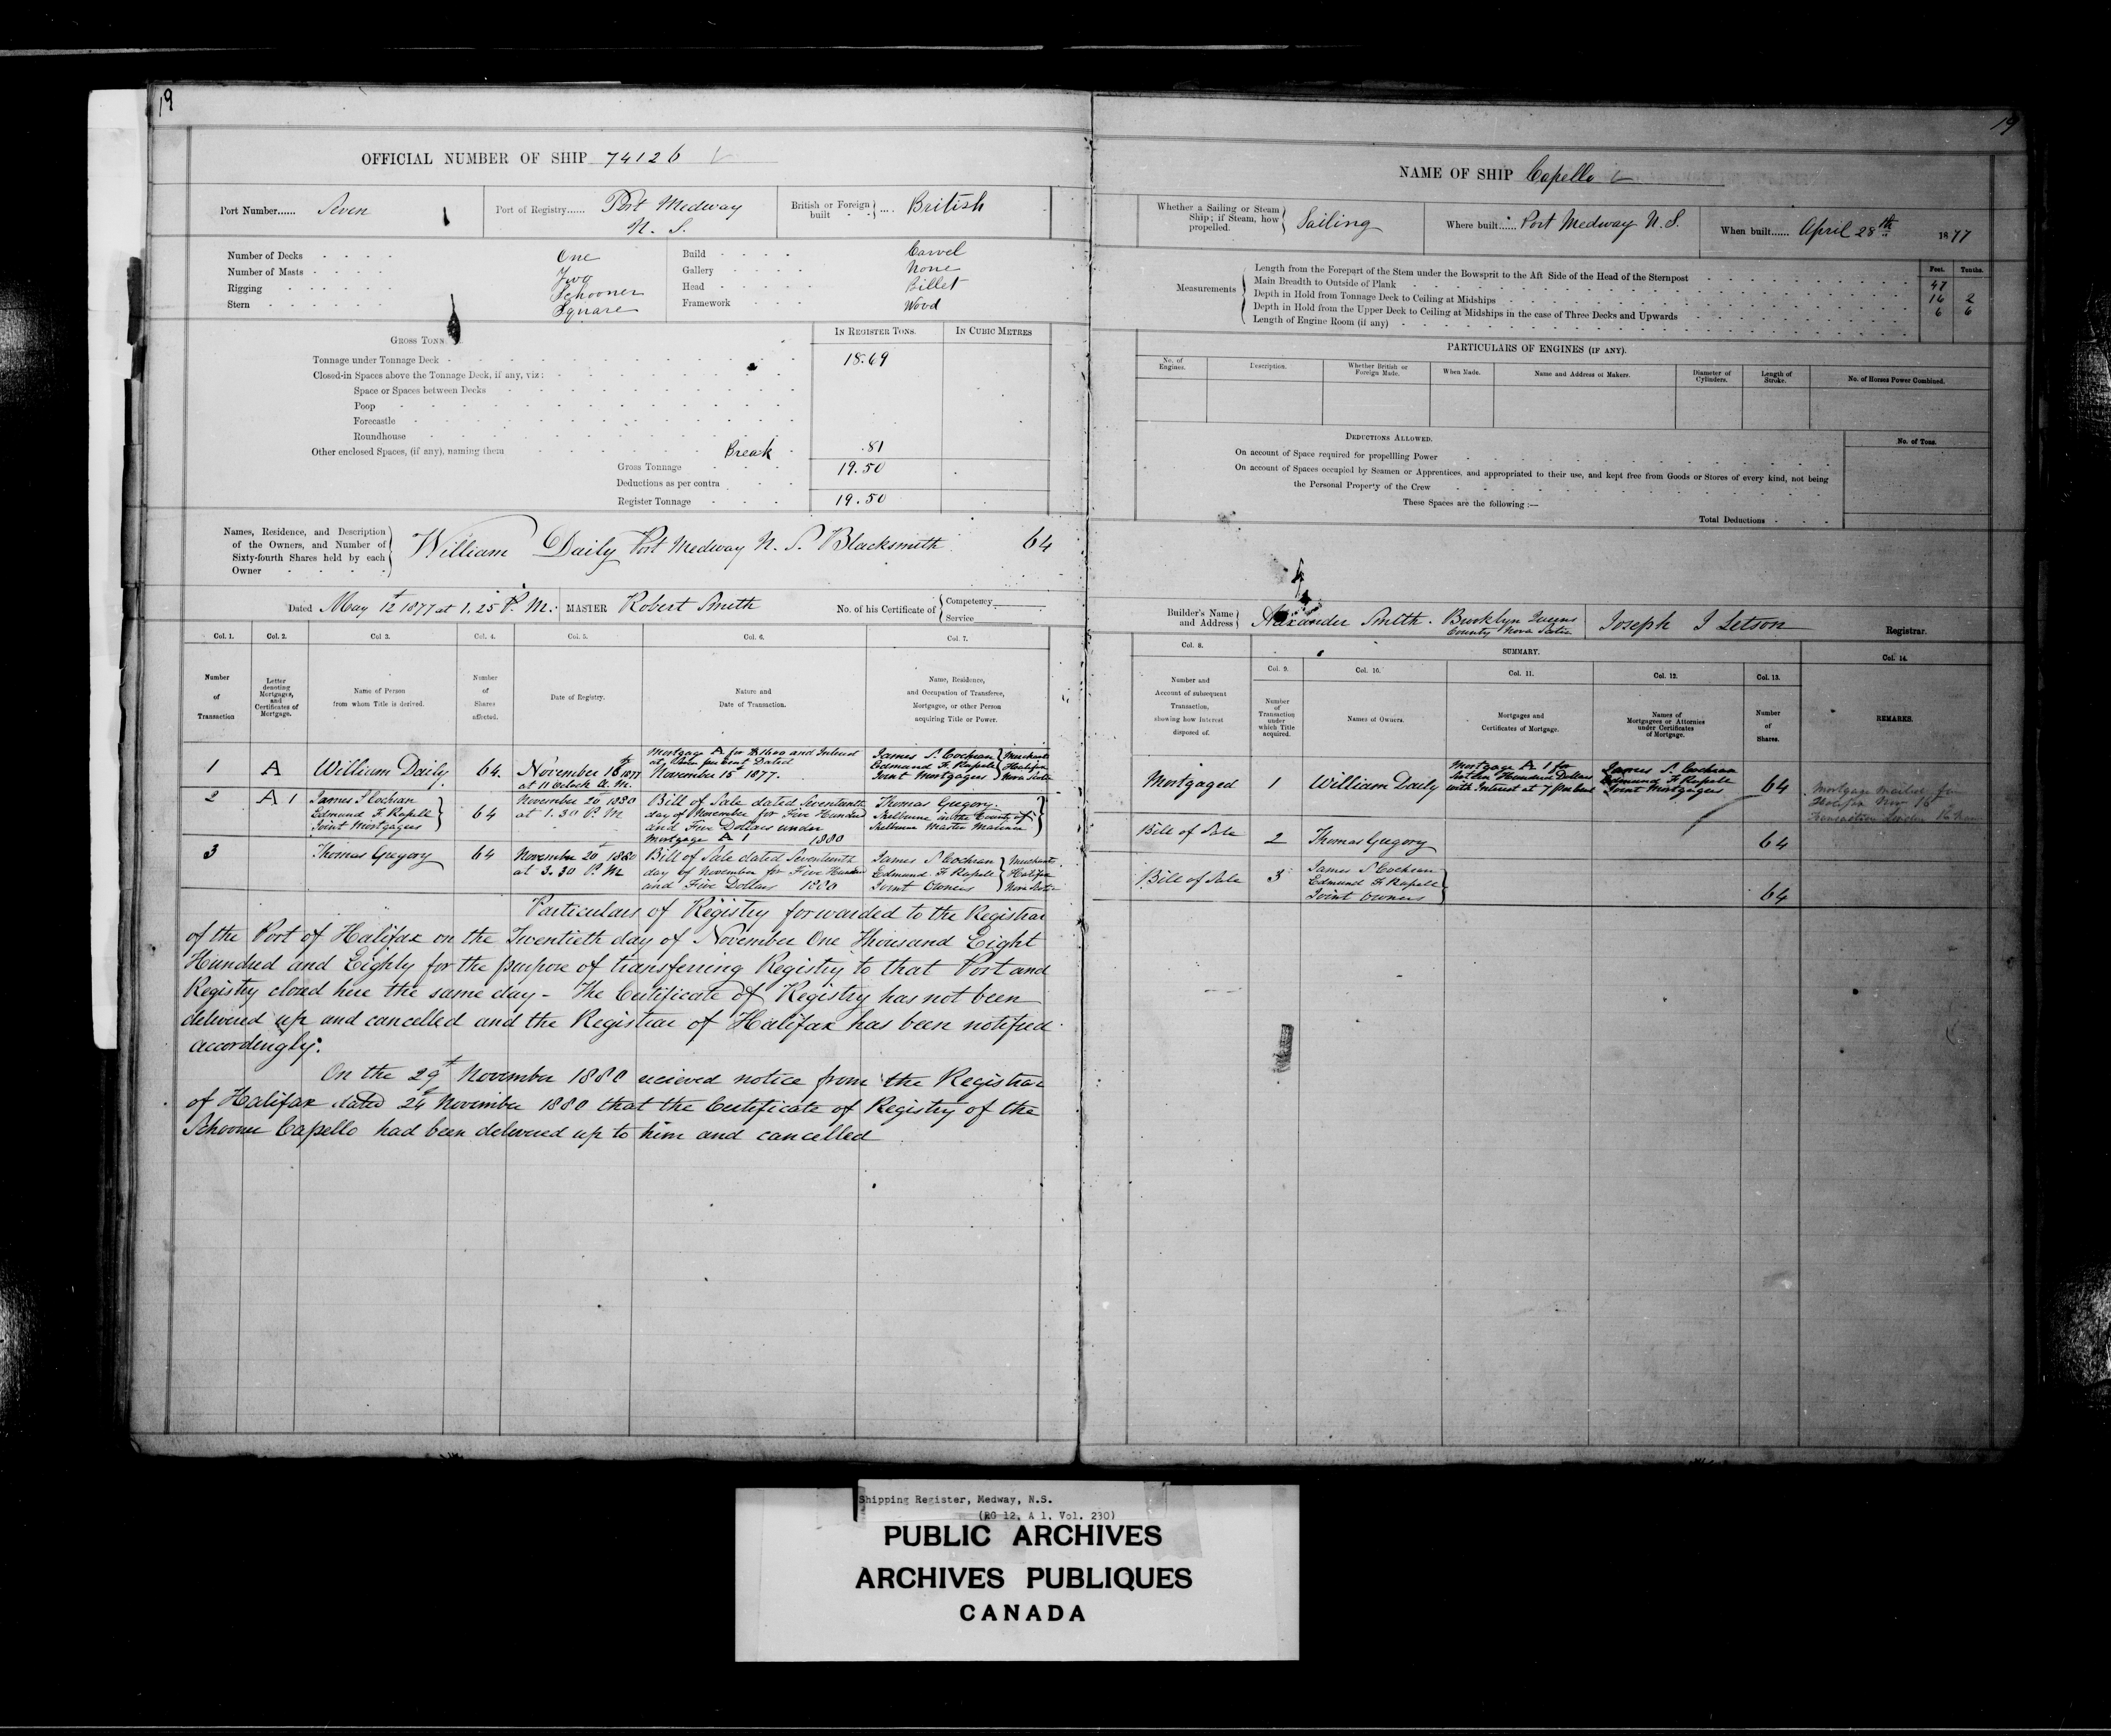 19
OFFICIAL NUMBER OF SHIP 74126
Port Number...... Seven
Port of Registry...... Port Medway
N. S.
British or Foreign built .... British
Number of Decks One
Number of Masts Two
Rigging Schooner
Stern Square
Build Carvel
Gallery None
Head Billet
Framework Wood
GROSS TONS
IN REGISTER TONS.
IN CUBIC METRES
Tonnage under Tonnage Deck 18.69
Closed-in Spaces above the Tonnage Deck, if any, viz:
Space or Spaces between Decks
Poop
Forecastle
Roundhouse
Other enclosed Spaces, (if any), naming them Break .81
Gross Tonnage 19.50
Deductions as per contra
Register Tonnage 19.50
Names, Residence, and Description
of the Owners, and Number of
Sixty-fourth Shares held by each
Owner
William Daily Port Medway N. S. Blacksmith 64
Dated May 12 1877 at 1.25 P. M. MASTER Robert Smith No. of his Certificate of
Competency
Service
Col. 1. Col. 2. Col 3. Col. 4. Col. 5. Col. 6. Col. 7.
Number of Transaction
Letter denoting Mortgages, and Certificates of Mortgage.
Name of Person from whom Title is derived.
Number of Shares affected.
Date of Registry.
Nature and Date of Transaction.
Name, Residence, and Occupation of Transferee, Mortgagee, or other Person acquiring Title or Power.
1 A William Daily 64
November 16th 1877
at 11 oclock A. M.
Mortgage A for $1600 and Interest
at per cent Dated
November 15th 1877.
James S. Cochran
Edmund F. Rupell
Joint Mortgages
Merchants
Halifax
Nova Scotia
2 A 1
James S Cochran
Edmund F Rupell
Joint Mortgages
64
November 20th 1880
at 1.30 P. M
Bill of Sale dated Seventeenth
day of November for Five Hundred
and Five Dollars under
Mortgage A 1 1880
Thomas Gregory.
Shelburne in the County of
Shelburne Master Mariner
3 Thomas Gregory 64
November 20th 1880
at 3.30 P. M
Bill of Sale dated Seventeenth
day of November for Five Hundred
and Five Dollars 1880
James S Cochran
Edmund F Rupell
Joint Owners
Merchants
Halifax
Nova Scotia
Particulars of Registry forwarded to the Registrar
of the Port of Halifax on the Twentieth day of November One Thousand Eight
Hundred and Eighty for the purpose of transferring Registry to that Port and
Registry closed here the same day - The Certificate of Registry has not been
delivered up and cancelled and the Registrar of Halifax has been notified
accordingly.
On the 29th November 1880 recieved notice from the Registrar
of Halifax dated 24th November 1880 that the Certificate of Registry of the
Schooner Capello had been delivered up to him and cancelled
19
NAME OF SHIP Capello
Whether a Sailing or Steam
Ship; if Steam, how
propelled.
Sailing
Where built...... Port Medway N. S.
When built...... April 28th 1877
Measurements
Feet. Tenths.
Length from the Forepart of the Stem under the Bowsprit to the Aft Side of the Head of the Sternpost 47
Main Breadth to Outside of Plank 16 2
Depth in Hold from Tonnage Deck to Ceiling at Midships 6 6
Depth in Hold from the Upper Deck to Ceiling at Midships in the case of Three Decks and Upwards
Length of Engine Room (if any)
PARTICULARS OF ENGINES (IF ANY).
No. of Engines.
Description.
Whether British or Foreign Made.
When Made.
Name and Address of Makers.
Diameter of Cylinders.
Length of Stroke.
No. of Horses Power Combined.
DEDUCTIONS ALLOWED.
No. of Tons.
On account of Space required for propellling Power
On account of Spaces occupied by Seamen or Apprentices, and appropriated to their use, and kept free from Goods or Stores of every kind, not being
the Personal Property of the Crew
These Spaces are the following :—
Total Deductions
Builder's Name
and Address
Alexander Smith. Brooklyn Queens
County Nova Scotia
Joseph I Letson
Registrar.
Col. 8. SUMMARY. Col. 14.
Col. 9. Col. 10. Col. 11. Col. 12. Col. 13.
Number and Account of subsequent Transaction, showing how Interest disposed of.
Number of Transaction under which Title acquired.
Names of Owners.
Mortgages and Certificates of Mortgage.
Names of Mortgagees or Attornies under Certificates of Mortgage.
Number of Shares.
REMARKS.
Mortgaged 1 William Daily
Mortgage A 1 for
Sixteen Hundred Dollars
with Interest at 7 per cent
James S. Cochran
Edmund F Rupell
Joint Mortgages
64
Mortgage mailed from
Halifax Nov 16th
Bill of Sale 2 Thomas Gregory 64
Bill of Sale 3
James S Cochran
Edmund F Rupell
Joint Owners
64
Shipping Register, Medway, N.S.
(RG 12, A 1, Vol. 230)
PUBLIC ARCHIVES
ARCHIVES PUBLIQUES
CANADA